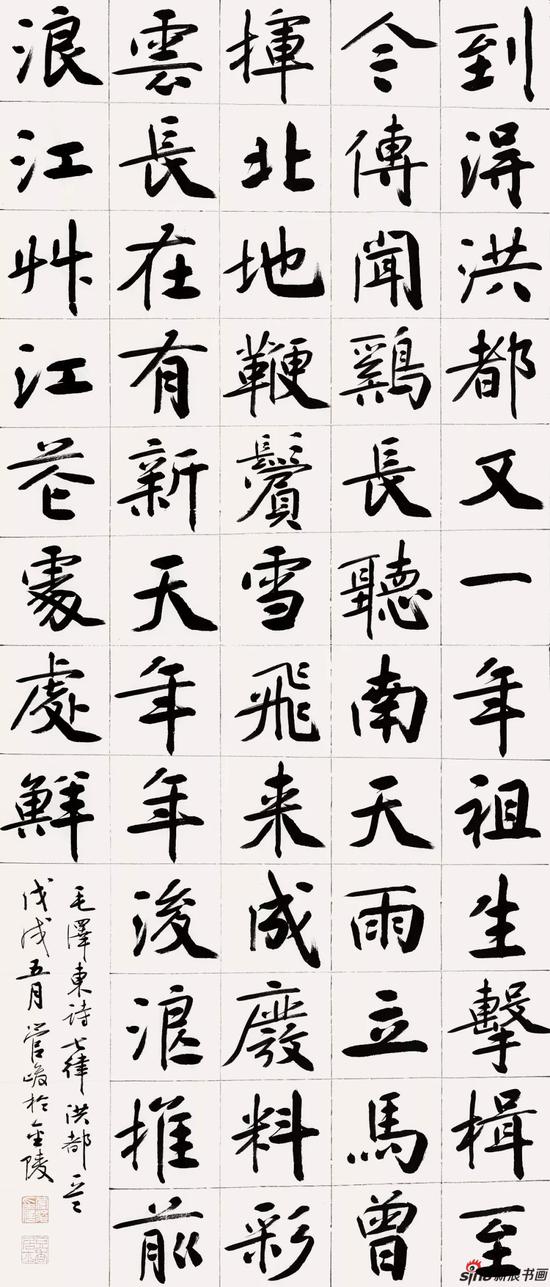 到得洪都又一年祖生擊楫至
今傳聞鷄長聽南天雨立馬曾
揮北地鞭鬢雪飛来成廢料彩
雲長在有新天年年後浪推前
浪江艸江花處處鮮
毛澤東詩七律洪都一首
戊戌五月管峻於金陵
sina新浪书画